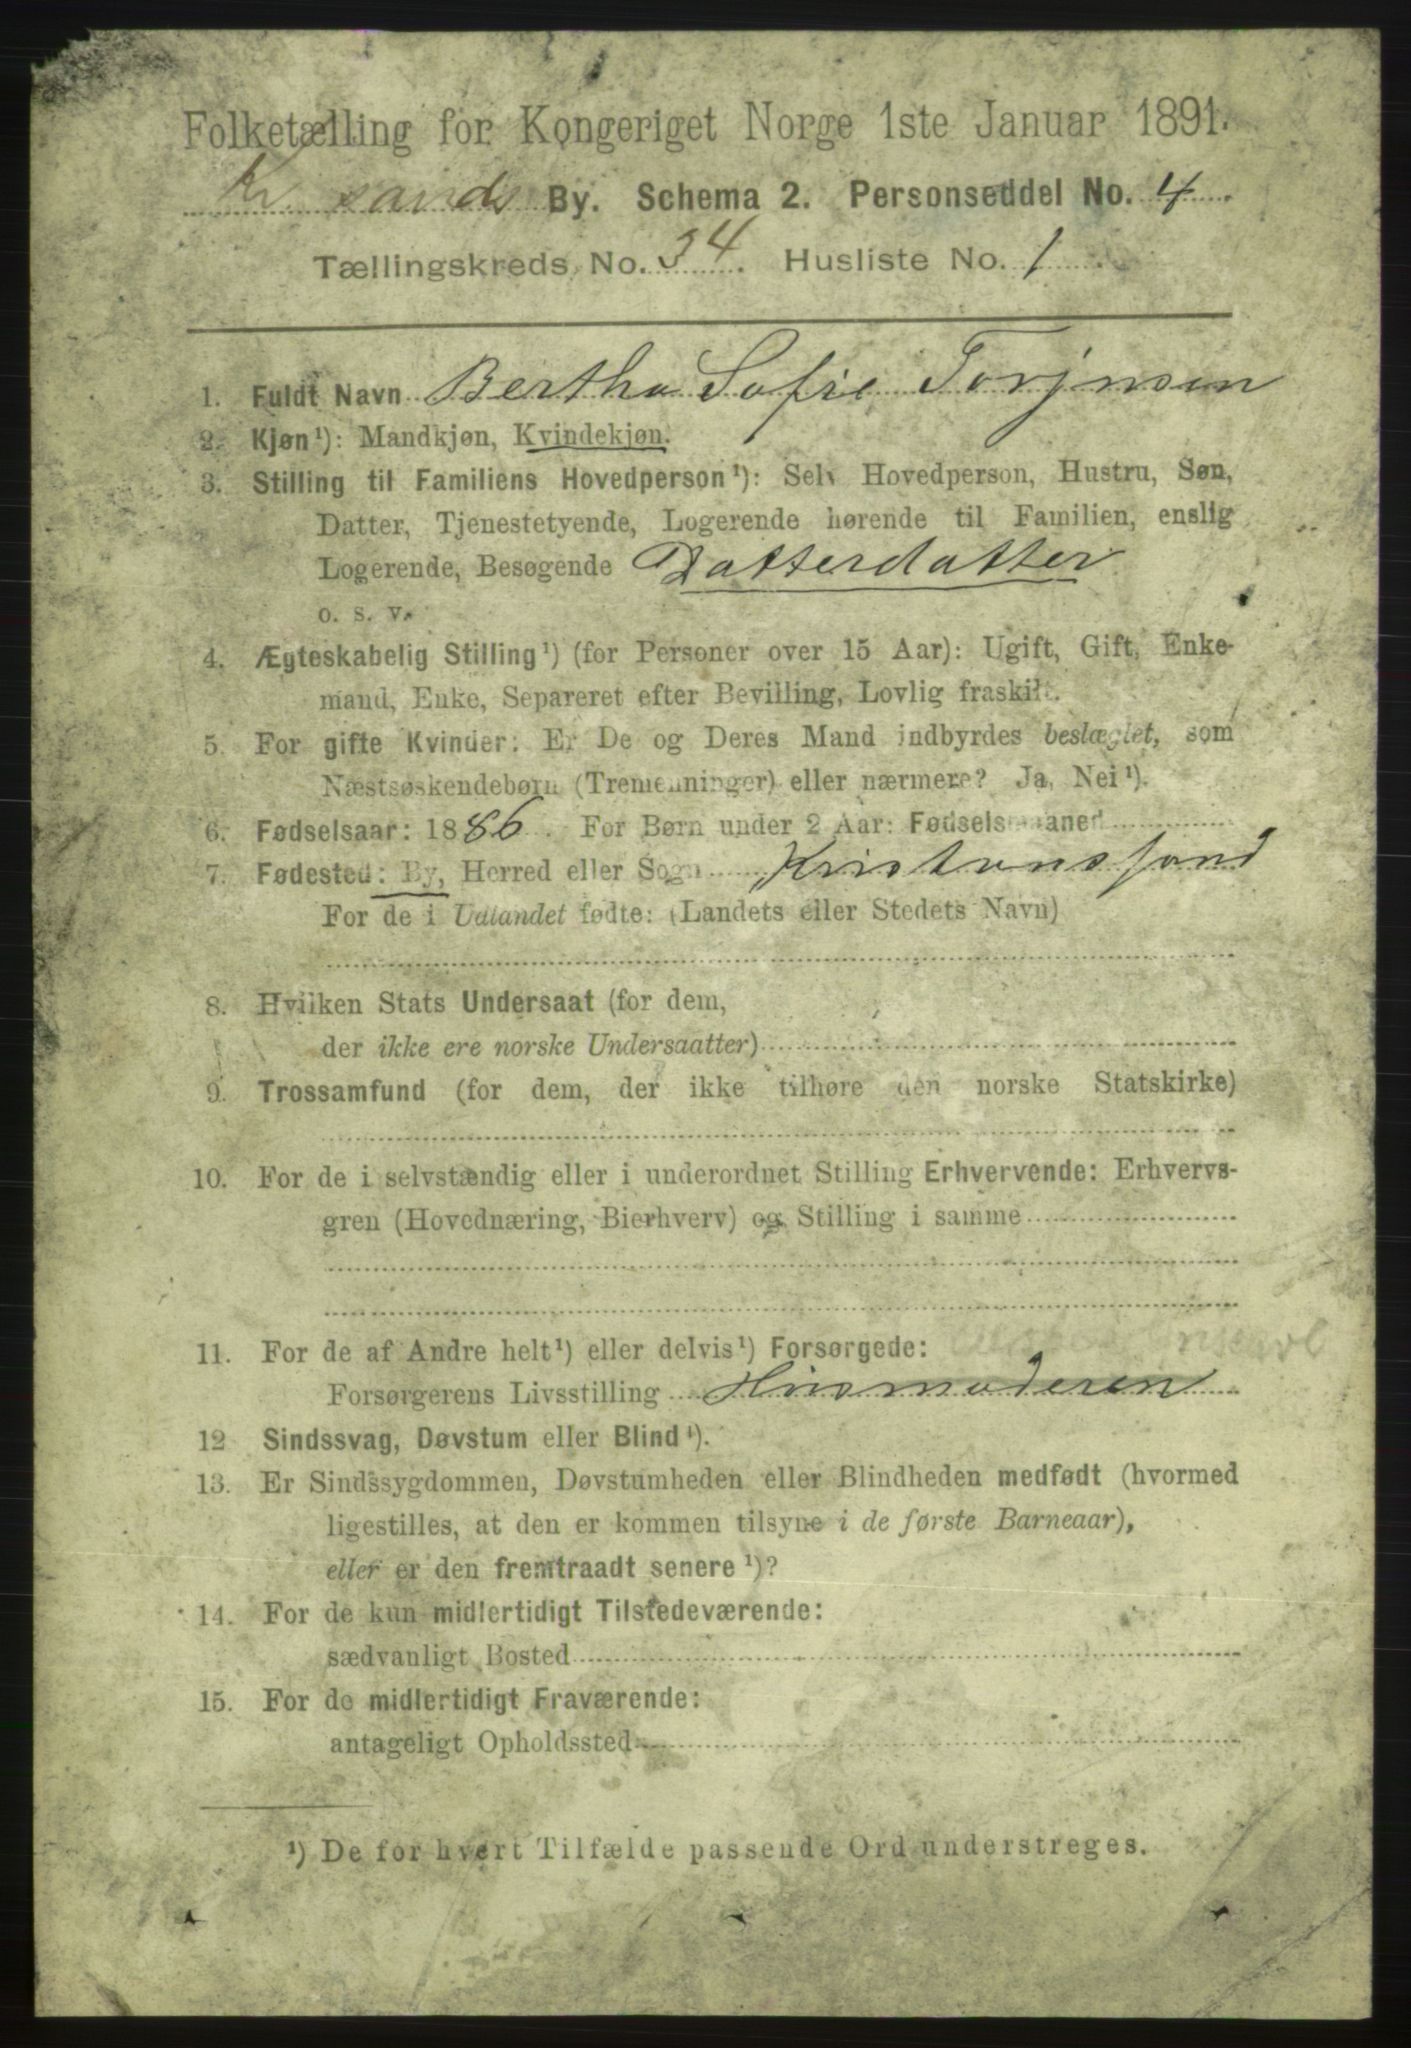 Folketælling for Kongeriget Norge 1ste Januar 1891.
Kr. sands By. Schema 2. Personseddel No. 4.
Tællingskreds No. 34. Husliste No. 1
1. Fuldt Navn Bertha Sofie Torjnsen
2. Kjøn¹): Mandkjøn, Kvindekjøn.
3. Stilling til Familiens Hovedperson¹): Selv Hovedperson, Hustru, Søn,
Datter, Tjenestetyende, Logerende hørende til Familien, enslig
Logerende, Besøgende Datterdatter
o. s. v.
4. Ægteskabelig Stilling¹) (for Personer over 15 Aar): Ugift, Gift, Enke-
mand, Enke, Separeret efter Bevilling, Lovlig fraskilt.
5. For gifte Kvinder: Er De og Deres Mand indbyrdes beslægtet, som
Næstsøskendebørn (Tremenninger) eller nærmere? Ja, Nei¹).
6. Fødselsaar: 1886. For Børn under 2 Aar: Fødselsmaaned
7. Fødested: By, Herred eller Sogn Kristianssand
For de i Udlandet fødte: (Landets eller Stedets Navn)
8. Hvilken Stats Undersaat (for dem,
der ikke ere norske Undersaatter)
9. Trossamfund (for dem, der ikke tilhøre den norske Statskirke)
10. For de i selvstændig eller i underordnet Stilling Erhvervende: Erhvervs-
gren (Hovednæring, Bierhverv) og Stilling i samme
11. For de af Andre helt¹) eller delvis¹) Forsørgede:
Forsørgerens Livsstilling Husmoderen
12 Sindssvag, Døvstum eller Blind¹).
13. Er Sindssygdommen, Døvstumheden eller Blindheden medfødt (hvormed
ligestilles, at den er kommen tilsyne i de første Barneaar),
eller er den fremtraadt senere¹)?
14. For de kun midlertidigt Tilstedeværende:
sædvanligt Bosted
15. For de midlertidigt Fraværende:
antageligt Opholdssted
¹) De for hvert Tilfælde passende Ord understreges.